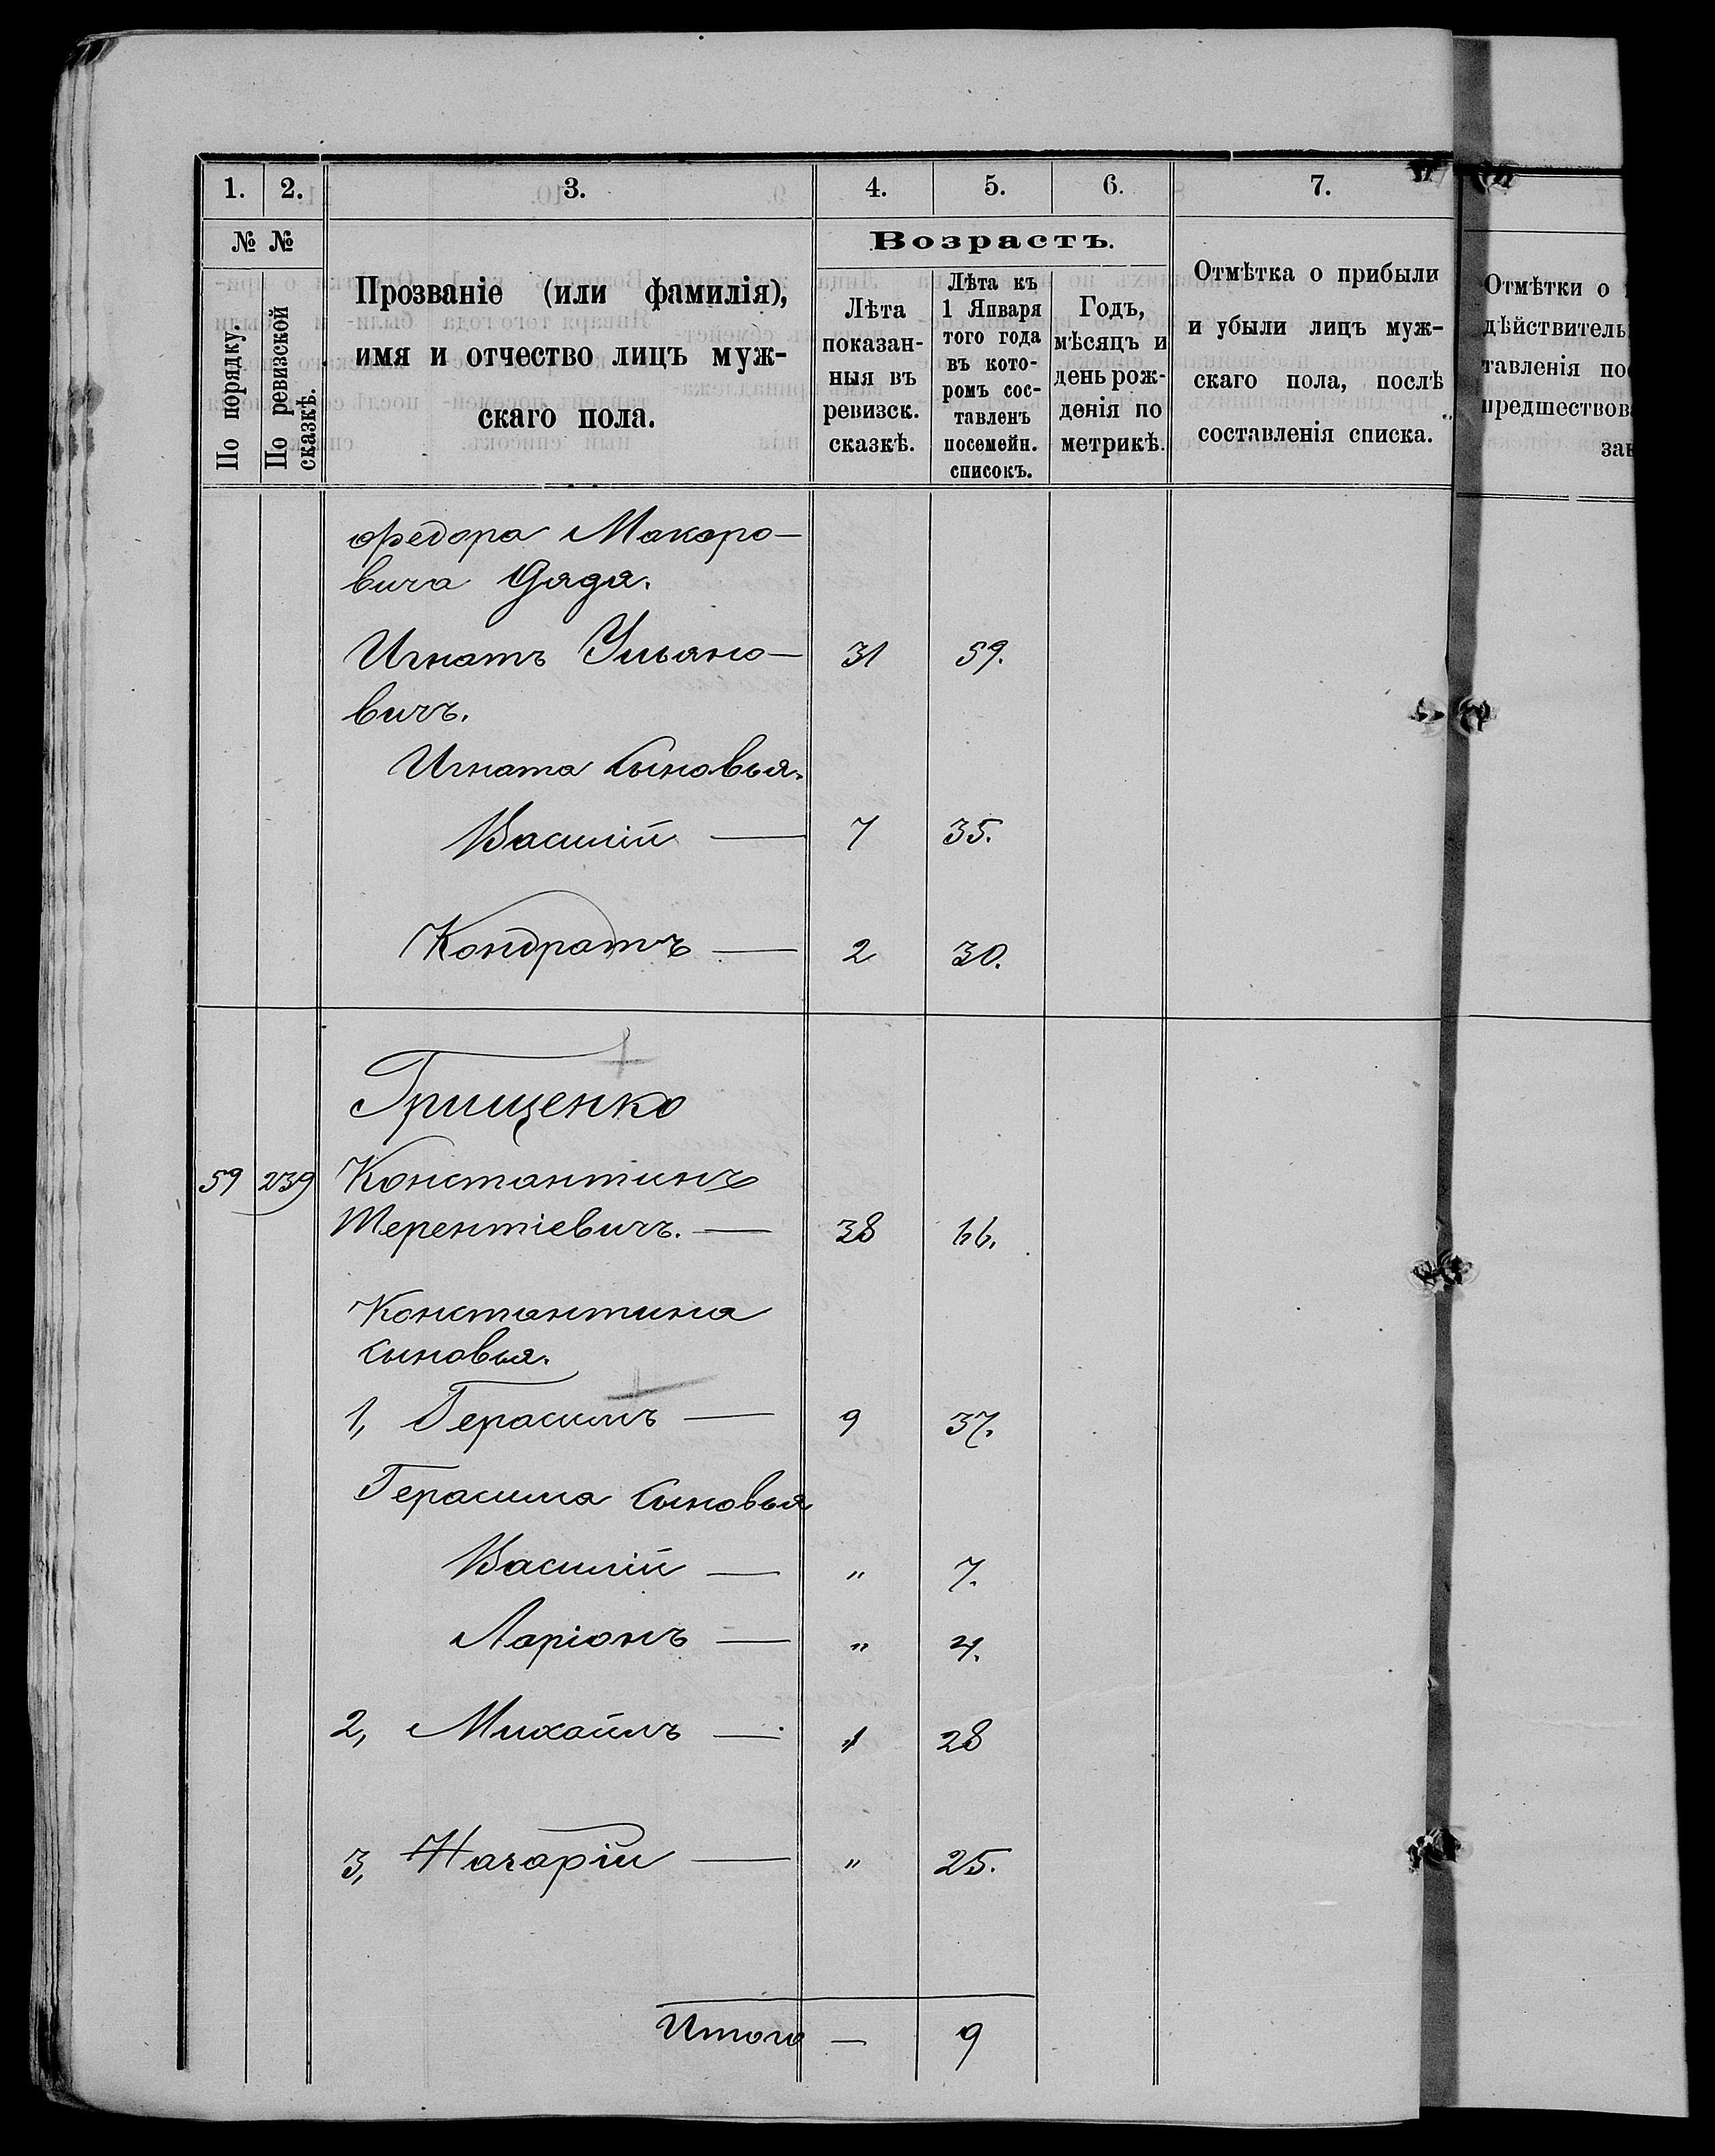 1. 2. 3. 4. 5. 6. 7.
№ №
По порядку.
По ревизской сказкѣ.
Прозваніе (или фамилія),
имя и отчество лицъ муж-
скаго пола.
Возрастъ.
Лѣта
показан-
ныя въ
ревизск.
сказкѣ.
Лѣта къ
1 Января
того года
въ кото-
ромъ сос-
тавленъ
посемейн.
списокъ.
Годъ,
мѣсяцъ и
день рож-
денія по
метрикѣ.
Отмѣтка о прибыли
и убыли лицъ муж-
скаго пола, послѣ
составленія списка.
Отмѣтки о
дѣйствитель
тавленія по
предшествов
зак
Федора Макаро-
вича Дядя.
Игнатъ Ульяно- 31 59.
вичъ.
Игната сыновья.
Василій — 7 35.
Кондратъ — 2 30.
Грищенко
59 239 Константинъ
Терентіевичъ. — 38 66.
Константина
сыновья.
1, Герасимъ — 9 37.
Герасима сыновья
Василій — " 7.
Ларіонъ — " 4.
2, Михаилъ — 28
3, Назарій — " 25.
Итого — 9